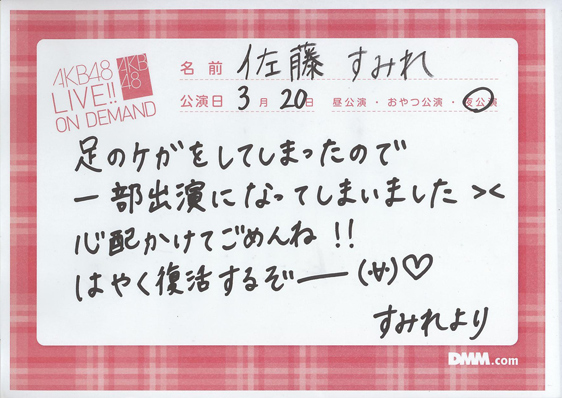 AKB48
LIVE!!
ON DEMAND
AKB
48
名前 佐藤 すみれ
公演日 3月20日 昼公演・おやつ公演・夜公演
足のケガをしてしまったので
一部出演になってしまいました ><
心配かけてごめんね!!
はやく復活するぞー(・∀・)♡
すみれより
DMM.com